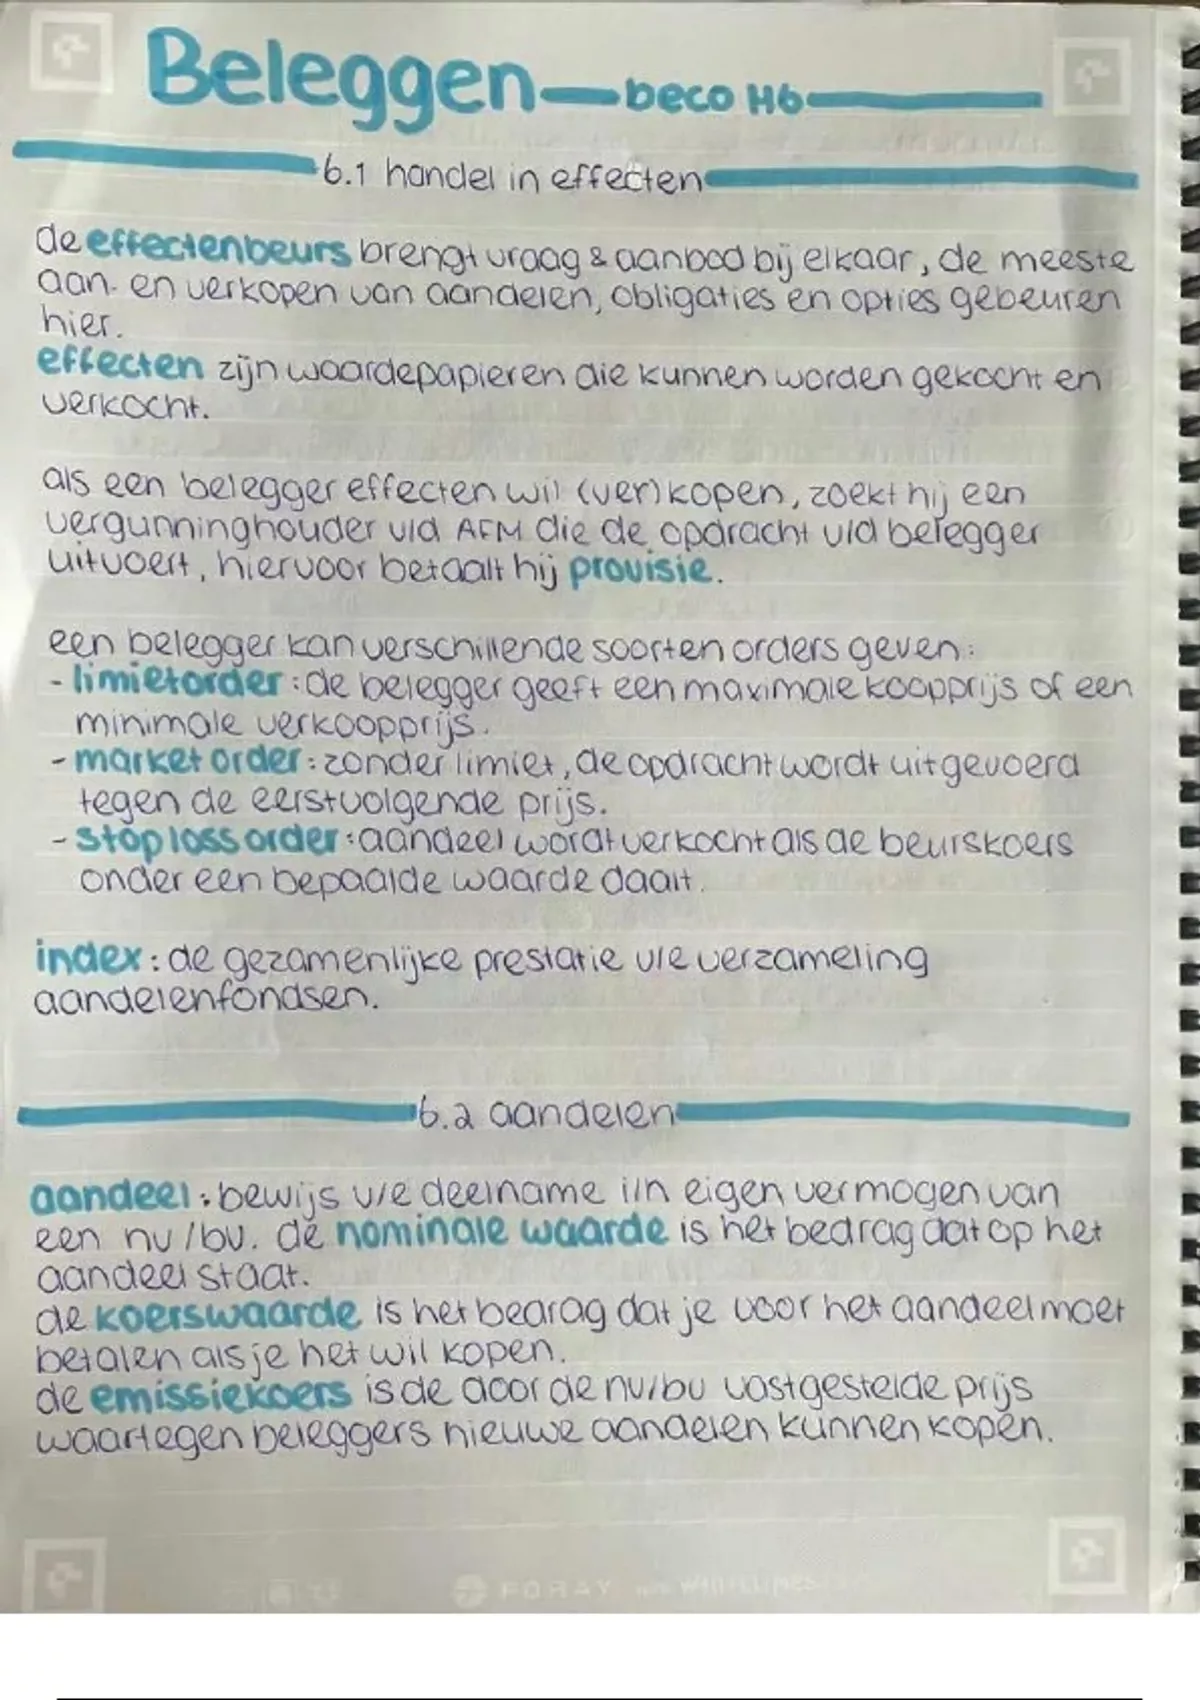 Beleggen beco H6
6.1 handel in effecten
de effectenbeurs brengt vraag & aanbod bij elkaar, de meeste
aan- en verkopen van aandelen, obligaties en opties gebeuren
hier.
effecten zijn waardepapieren die kunnen worden gekocht en
verkocht.
als een belegger effecten wil (ver)kopen, zoekt hij een
vergunninghouder v/d AFM die de opdracht v/d belegger
uitvoert, hiervoor betaalt hij provisie.
een belegger kan verschillende soorten orders geven:
- limietorder: de belegger geeft een maximale koopprijs of een
minimale verkoopprijs.
- market order: zonder limiet, de opdracht wordt uitgevoerd
tegen de eerstvolgende prijs.
- stop loss order: aandeel wordt verkocht als de beurskoers
onder een bepaalde waarde daalt.
index: de gezamenlijke prestatie v/e verzameling
aandelenfondsen.
6.2 aandelen
aandeel: bewijs v/e deelname i/h eigen vermogen van
een nv/bv. de nominale waarde is het bedrag dat op het
aandeel staat.
de koerswaarde is het bedrag dat je voor het aandeel moet
betalen als je het wil kopen.
de emissiekoers is de door de nv/bv vastgestelde prijs
waartegen beleggers nieuwe aandelen kunnen kopen.
FORAY